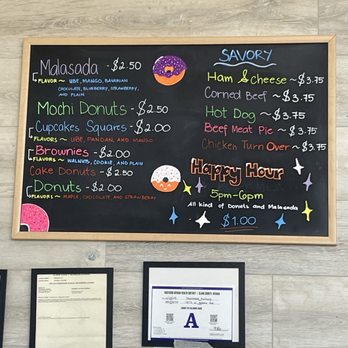 Malasada - $2.50
FLAVOR ~ UBE, MANGO, BAVARIAN
CHOCOLATE, BLUEBERRY, STRAWBERRY,
AND PLAIN
Mochi Donuts - $2.50
Cupcakes Squares - $2.00
FLAVORS ~ UBE, PANDAN, AND MANGO
Brownies - $2.00
FLAVORS ~ WALNUTS, COOKIE, AND PLAIN
Cake Donuts - $2.50
Donuts - $2.00
FLAVORS ~ MAPLE, CHOCOLATE AND STRAWBERRY
SAVORY
Ham & Cheese ~ $3.75
Corned Beef ~ $3.75
Hot Dog ~ $3.75
Beef Meat Pie ~ $3.75
Chicken Turn Over ~ $3.75
Happy Hour
5pm-6pm
All kind of Donuts and Malasada
$1.00
SOUTHERN NEVADA HEALTH DISTRICT
A